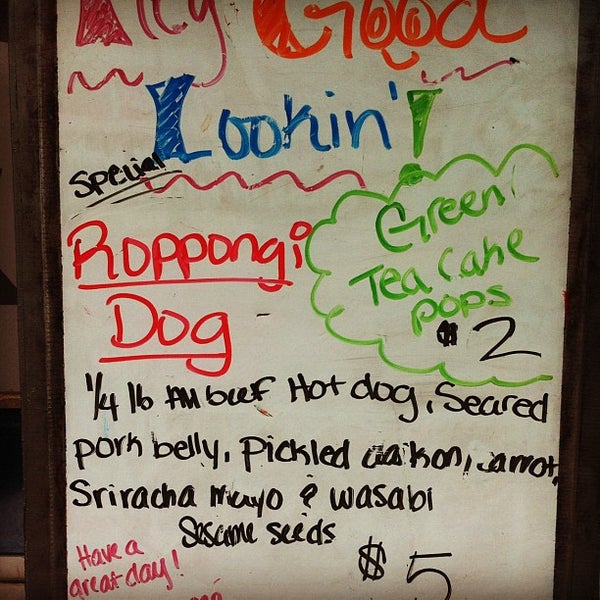 Hey Good
Lookin'!
Special
Roppongi
Dog
Green
Tea Cake
pops
$2
1/4 lb All beef Hot dog, Seared
pork belly, Pickled daikon, carrot,
Sriracha mayo & wasabi
Sesame seeds
$5
Have a
great day!